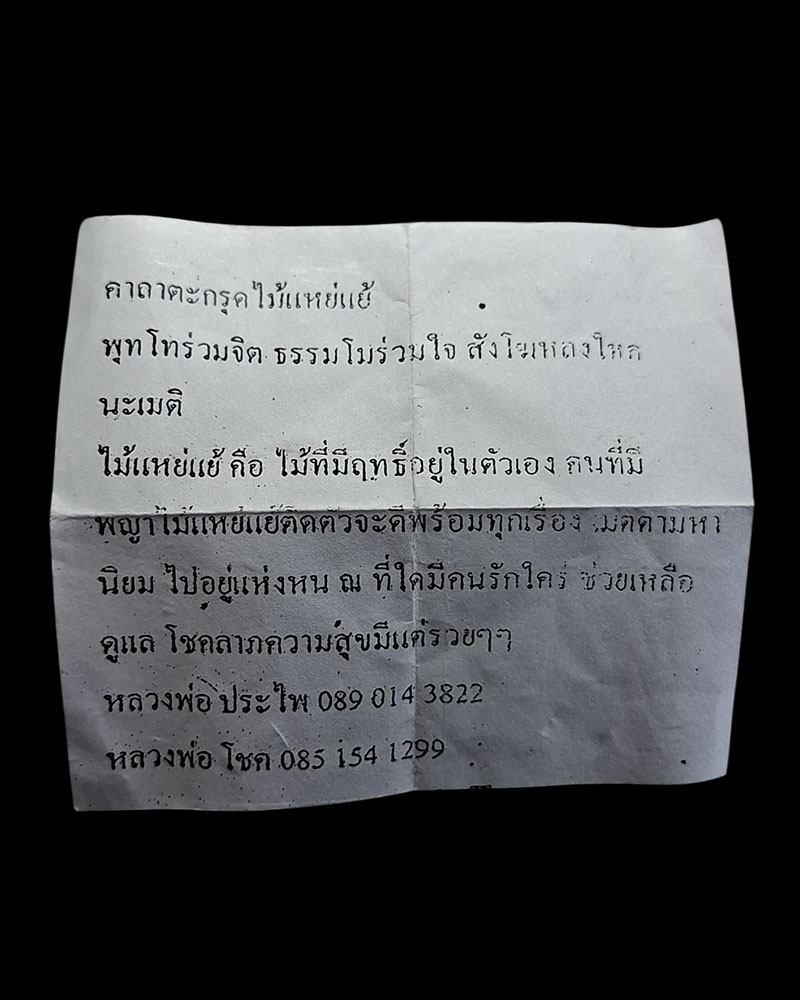 คาถาตะกรุดไม้แหย่แย้
พุทโทร่วมจิต ธรรมโมร่วมใจ สังโฆหลงใหล
นะเมติ
ไม้แหย่แย้ คือ ไม้ที่มีฤทธิ์อยู่ในตัวเอง คนที่มี
พญาไม้แหย่แย้ติดตัวจะดีพร้อมทุกเรื่อง เมตตามหา
นิยม ไปอยู่แห่งหน ณ ที่ใดมีคนรักใคร่ ช่วยเหลือ
ดูแล โชคลาภความสุขมีแต่รวยๆๆ
หลวงพ่อ ประไพ 089 014 3822
หลวงพ่อ โชค 085 154 1299